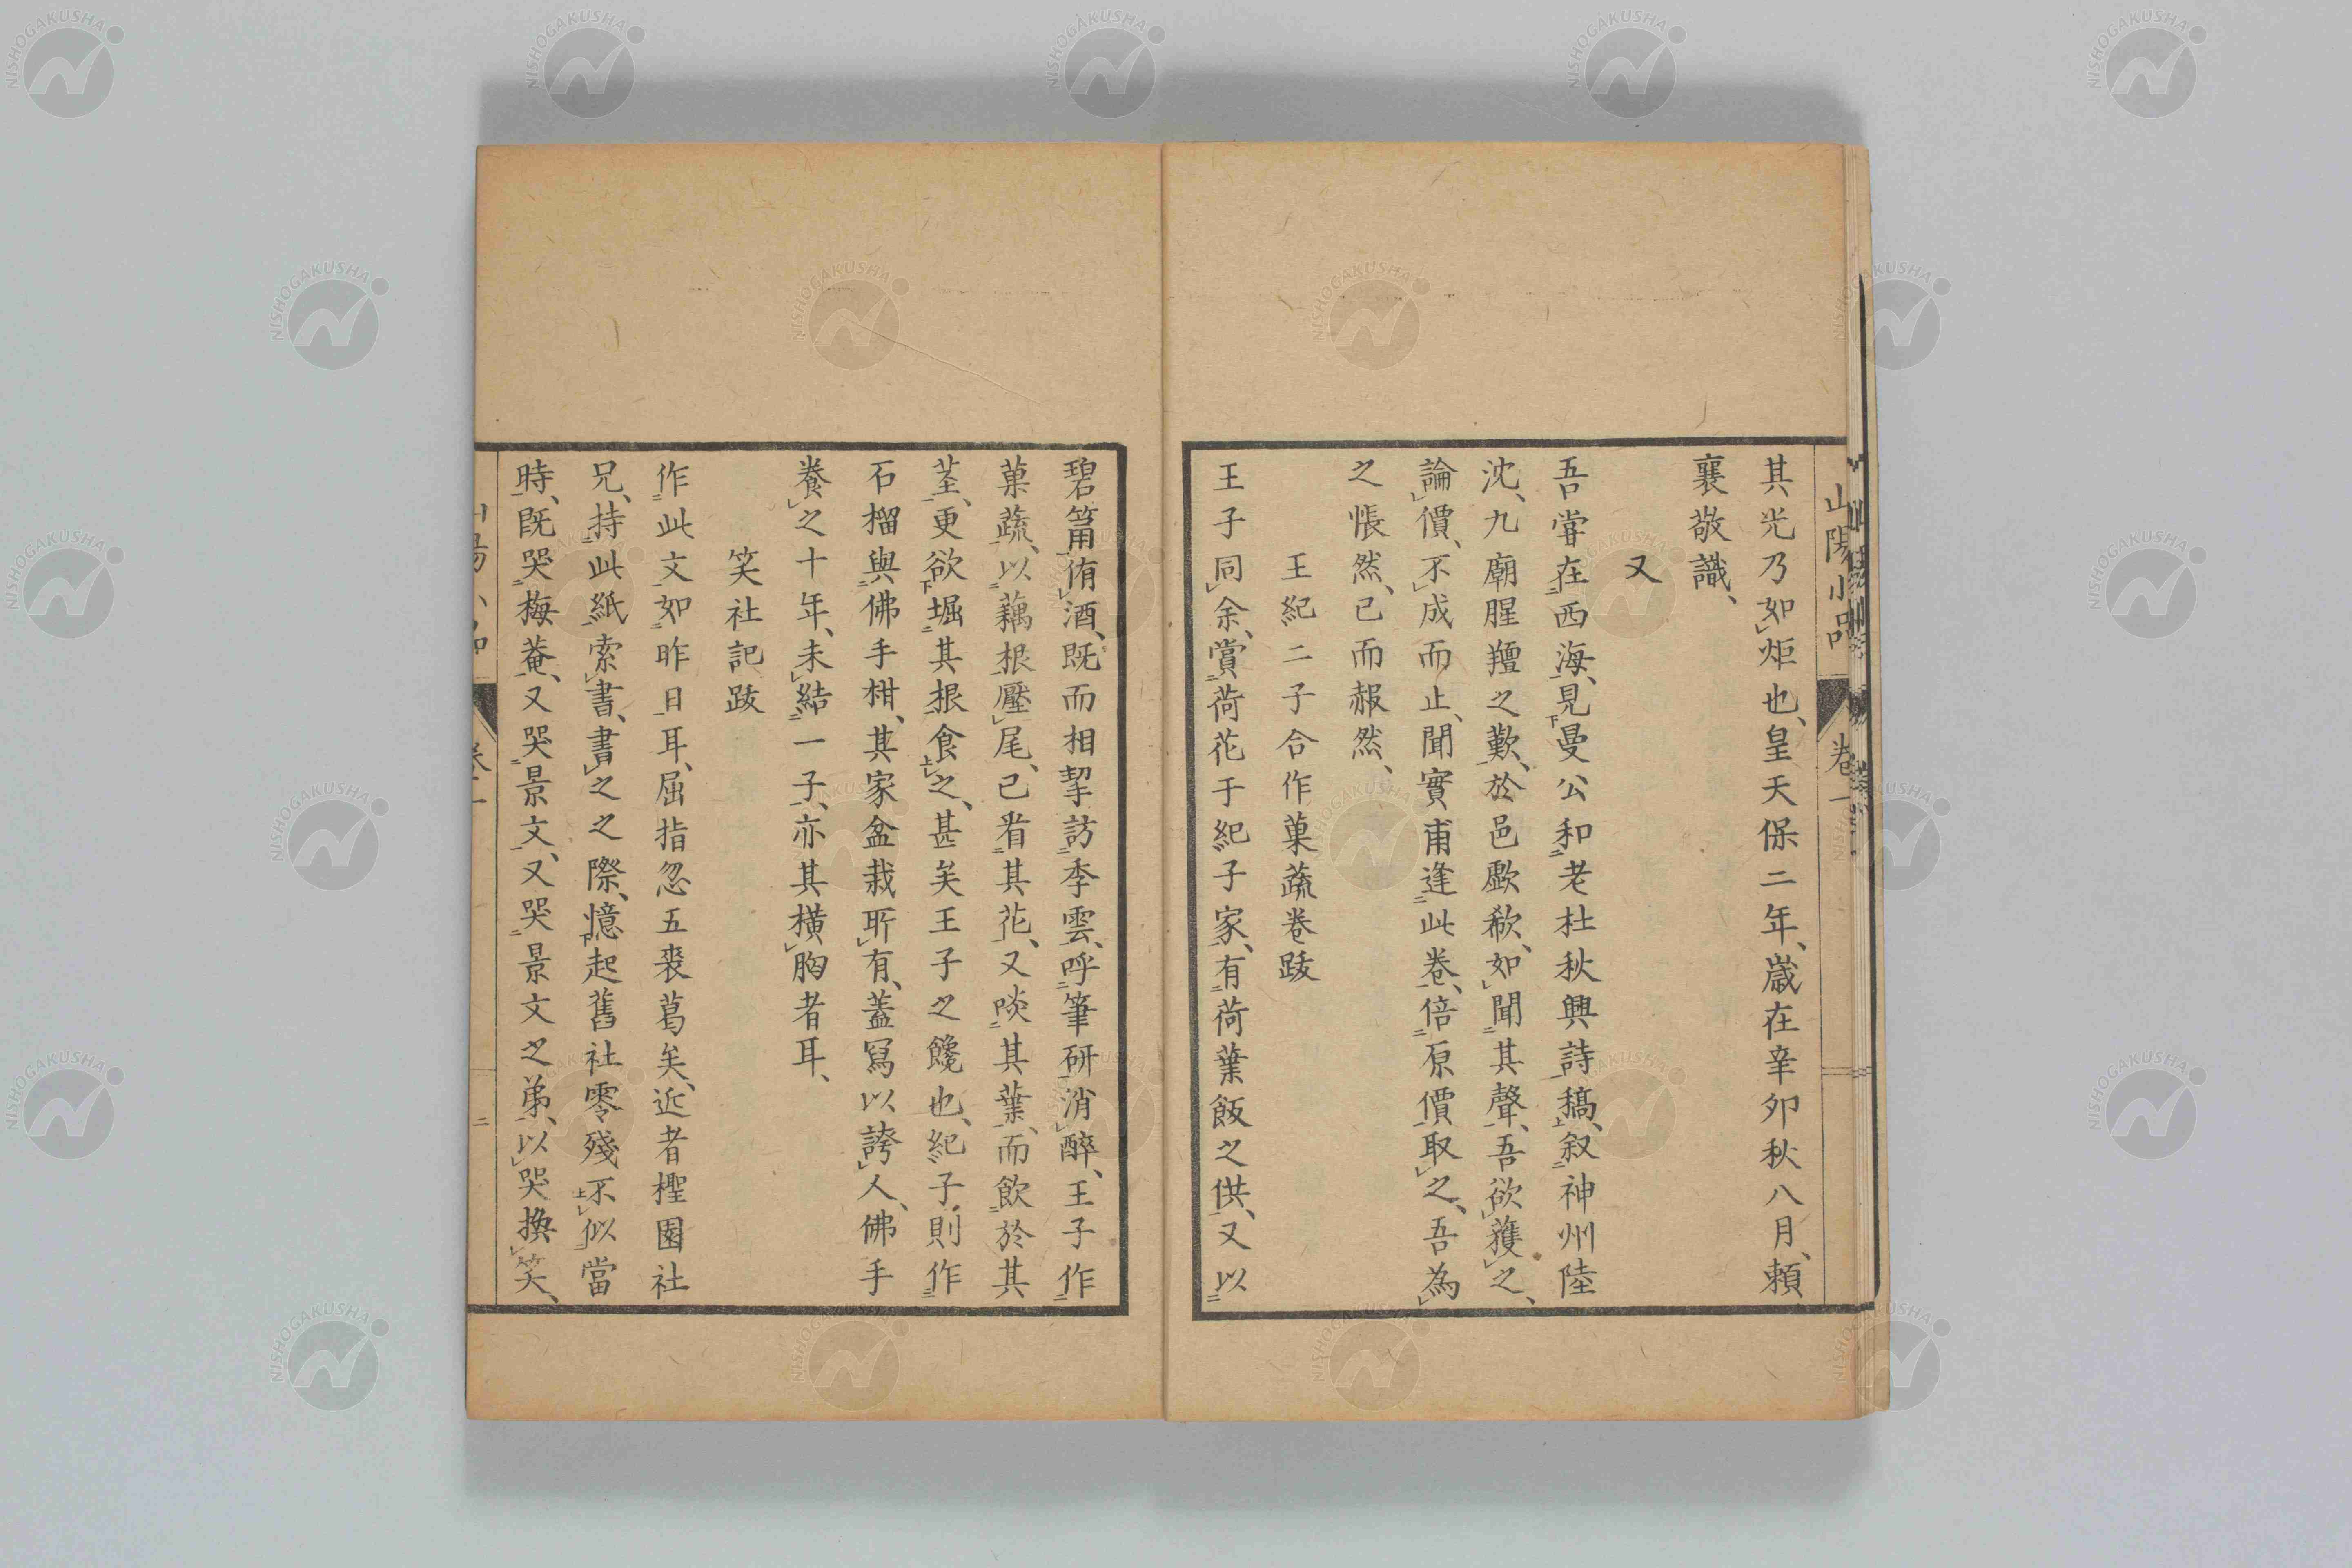 山陽小品 卷一
其光乃如炬也、皇天保二年、歲在辛卯秋八月、賴
襄敬識、
又
吾嘗在西海、見曼公和老杜秋興詩稿、叙神州陸
沈、九廟腥羶之歎、於邑歔欷、如聞其聲、吾欲獲之、
論價、不成而止、聞實甫逢此卷、倍原價取之、吾為
之悵然、已而赧然、
王紀二子合作菓蔬卷跋
王子同余、賞荷花于紀子家、有荷葉飯之供、又以
碧筩侑酒、既而相挈訪季雲、呼筆研消醉、王子作
菓蔬、以藕根壓尾、已看其花、又啖其葉、而飲於其
莖、更欲堀其根食之、甚矣王子之饞也、紀子則作
石榴與佛手柑、其家盆栽所有、蓋寫以誇人、佛手
養之十年、未結一子、亦其橫胸者耳、
笑社記跋
作此文如昨日耳、屈指忽五裘葛矣、近者檉園社
兄、持此紙索書、書之之際、憶起舊社零殘不似當
時、既哭梅菴、又哭景文、又哭景文之弟、以哭換笑、
二
NISHOGAKUSHA